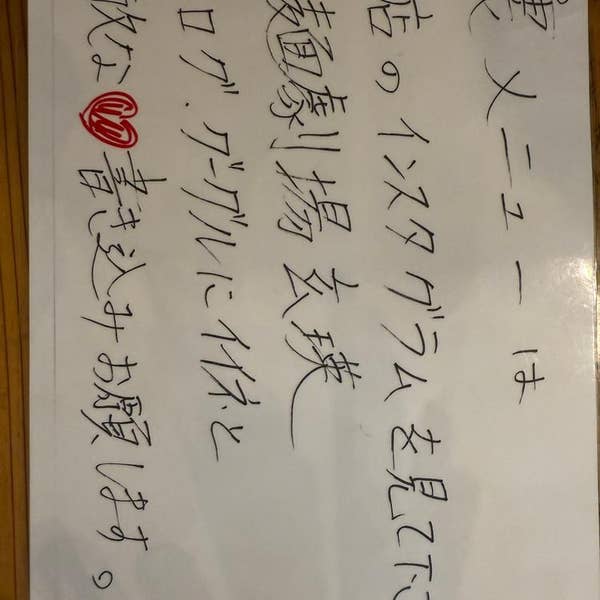 裏メニューは
店のインスタグラムを見て下さ
麺劇場 玄瑛
ログ.グーグルにイイネと
款な♥書き込みお願します。